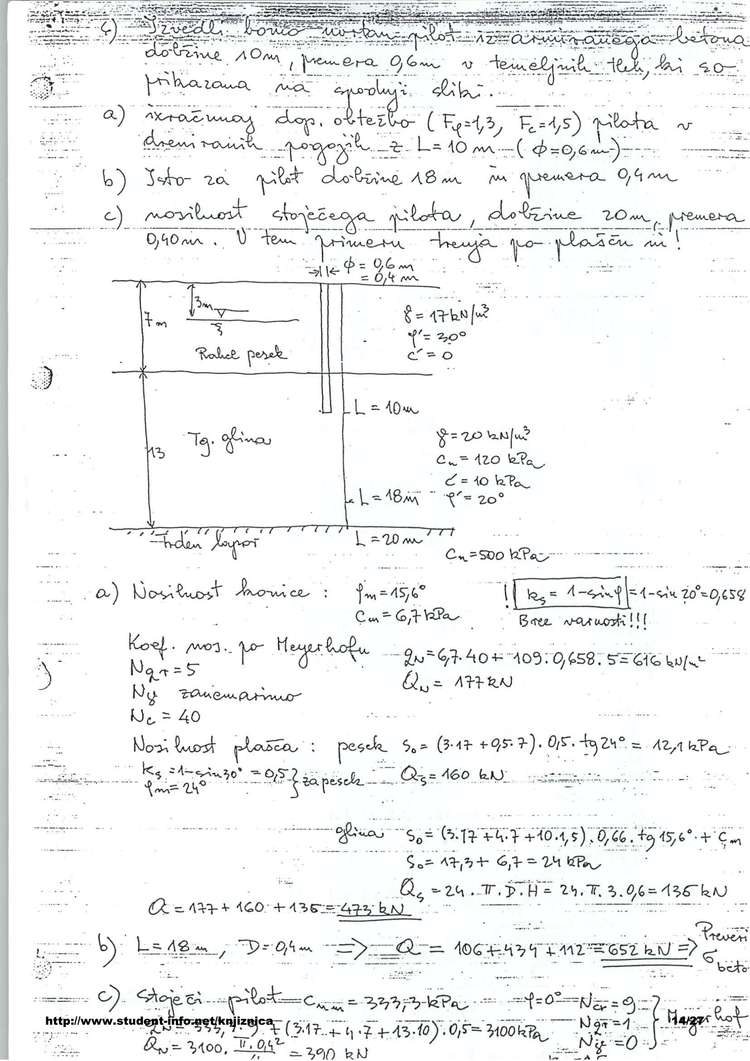 c) Izvedli bomo uvrtan pilot iz armiranega betona
dolžine 10m, premera 0,6m v temeljnih tleh, ki so
prikazana na spodnji sliki.
a) izračunaj dop. obtežbo (Fφ=1,3, Fc=1,5) pilota v
dreniranih pogojih z L=10m (Φ=0,6m)
b) Isto za pilot dolžine 18m in premera 0,4m
c) nosilnost stoječega pilota, dolžine 20m, premera
0,40m. V tem primeru trenja po plašču ni!
Φ = 0,6m
= 0,4m
3m
7m
γ = 17 kN/m³
φ' = 30°
c' = 0
Rahel pesek
L = 10m
Tg. glina
13
γ = 20 kN/m³
cu = 120 kPa
c' = 10 kPa
φ' = 20°
L = 18m
Trden lapor
L = 20m
Cu = 500 kPa
a) Nosilnost konice : φm = 15,6°
cm = 6,7 kPa
!! ks = 1-sinφ = 1-sin 20° = 0,658
Brez varnosti!!!
Koef. nos. po Meyerhofu
Nqr = 5
Nγ zanemarimo
Nc = 40
qN = 6,7·40 + 109·0,658·5 = 616 kN/m²
QN = 177 kN
Nosilnost plašča : pesek So = (3·17 + 0,5·7)·0,5·tg24° = 12,1 kPa
ks = 1-sin30° = 0,5 } za pesek
φm = 24°
Qs = 160 kN
glina So = (3·17 + 4·7 + 10·1,5)·0,66·tg 15,6° + cm
So = 17,3 + 6,7 = 24 kPa
Qs = 24·π·D·H = 24·π·3·0,6 = 136 kN
Q = 177 + 160 + 136 = 473 kN
b) L = 18m, D = 0,4m ⇒ Q = 106 + 434 + 112 = 652 kN ⇒ Preveri
σ beto
c) Stoječi pilot cum = 333,3 kPa φ=0° Ncr = 9
Nqr = 1
Nγ = 0
} Meyerhof
http://www.student-info.net/knjiznica
14/27
(3·17 + 4·7 + 13·10)·0,5 = 3100 kPa
QN = 3100· π·0,4² = 390 kN